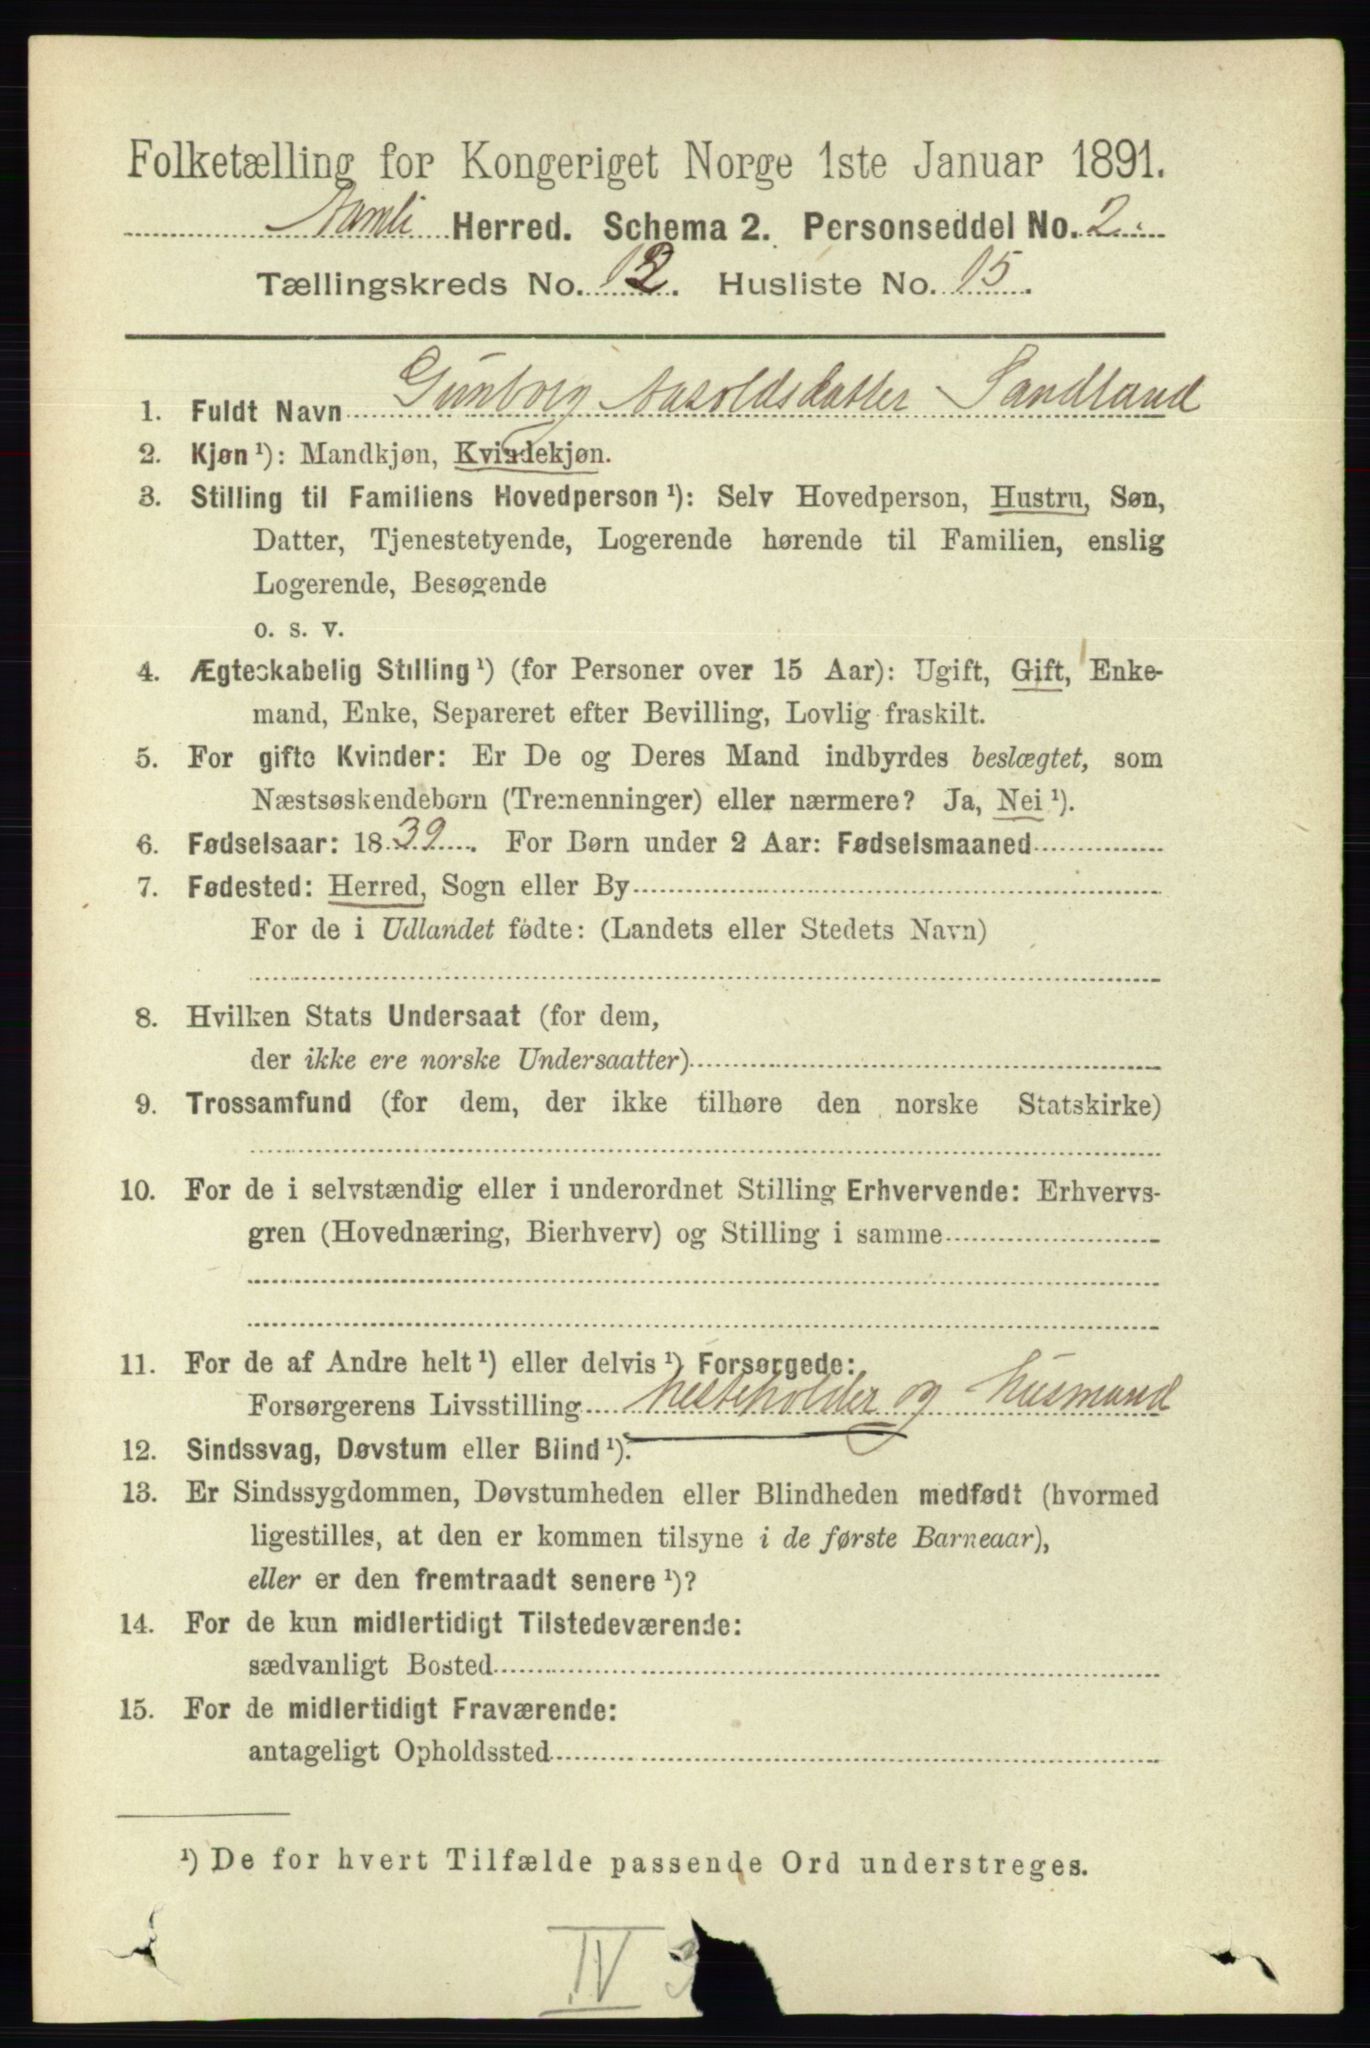 Folketælling for Kongeriget Norge 1ste Januar 1891.
Aamli Herred. Schema 2. Personseddel No. 2
Tællingskreds No. 12. Husliste No. 15.
1. Fuldt Navn Gunborg Aasoldsdatter Sandland
2. Kjøn ¹): Mandkjøn, Kvindekjøn.
3. Stilling til Familiens Hovedperson ¹): Selv Hovedperson, Hustru, Søn,
Datter, Tjenestetyende, Logerende hørende til Familien, enslig
Logerende, Besøgende
o. s. v.
4. Ægteskabelig Stilling ¹) (for Personer over 15 Aar): Ugift, Gift, Enke-
mand, Enke, Separeret efter Bevilling, Lovlig fraskilt.
5. For gifte Kvinder: Er De og Deres Mand indbyrdes beslægtet, som
Næstsøskendebørn (Tremenninger) eller nærmere? Ja, Nei ¹).
6. Fødselsaar: 1839. For Børn under 2 Aar: Fødselsmaaned
7. Fødested: Herred, Sogn eller By
For de i Udlandet fødte: (Landets eller Stedets Navn)
8. Hvilken Stats Undersaat (for dem,
der ikke ere norske Undersaatter)
9. Trossamfund (for dem, der ikke tilhøre den norske Statskirke)
10. For de i selvstændig eller i underordnet Stilling Erhvervende: Erhvervs-
gren (Hovednæring, Bierhverv) og Stilling i samme
11. For de af Andre helt ¹) eller delvis ¹) Forsørgede:
Forsørgerens Livsstilling Hesteholder og Husmand
12. Sindssvag, Døvstum eller Blind ¹).
13. Er Sindssygdommen, Døvstumheden eller Blindheden medfødt (hvormed
ligestilles, at den er kommen tilsyne i de første Barneaar),
eller er den fremtraadt senere ¹)?
14. For de kun midlertidigt Tilstedeværende:
sædvanligt Bosted
15. For de midlertidigt Fraværende:
antageligt Opholdssted
¹) De for hvert Tilfælde passende Ord understreges.
IV